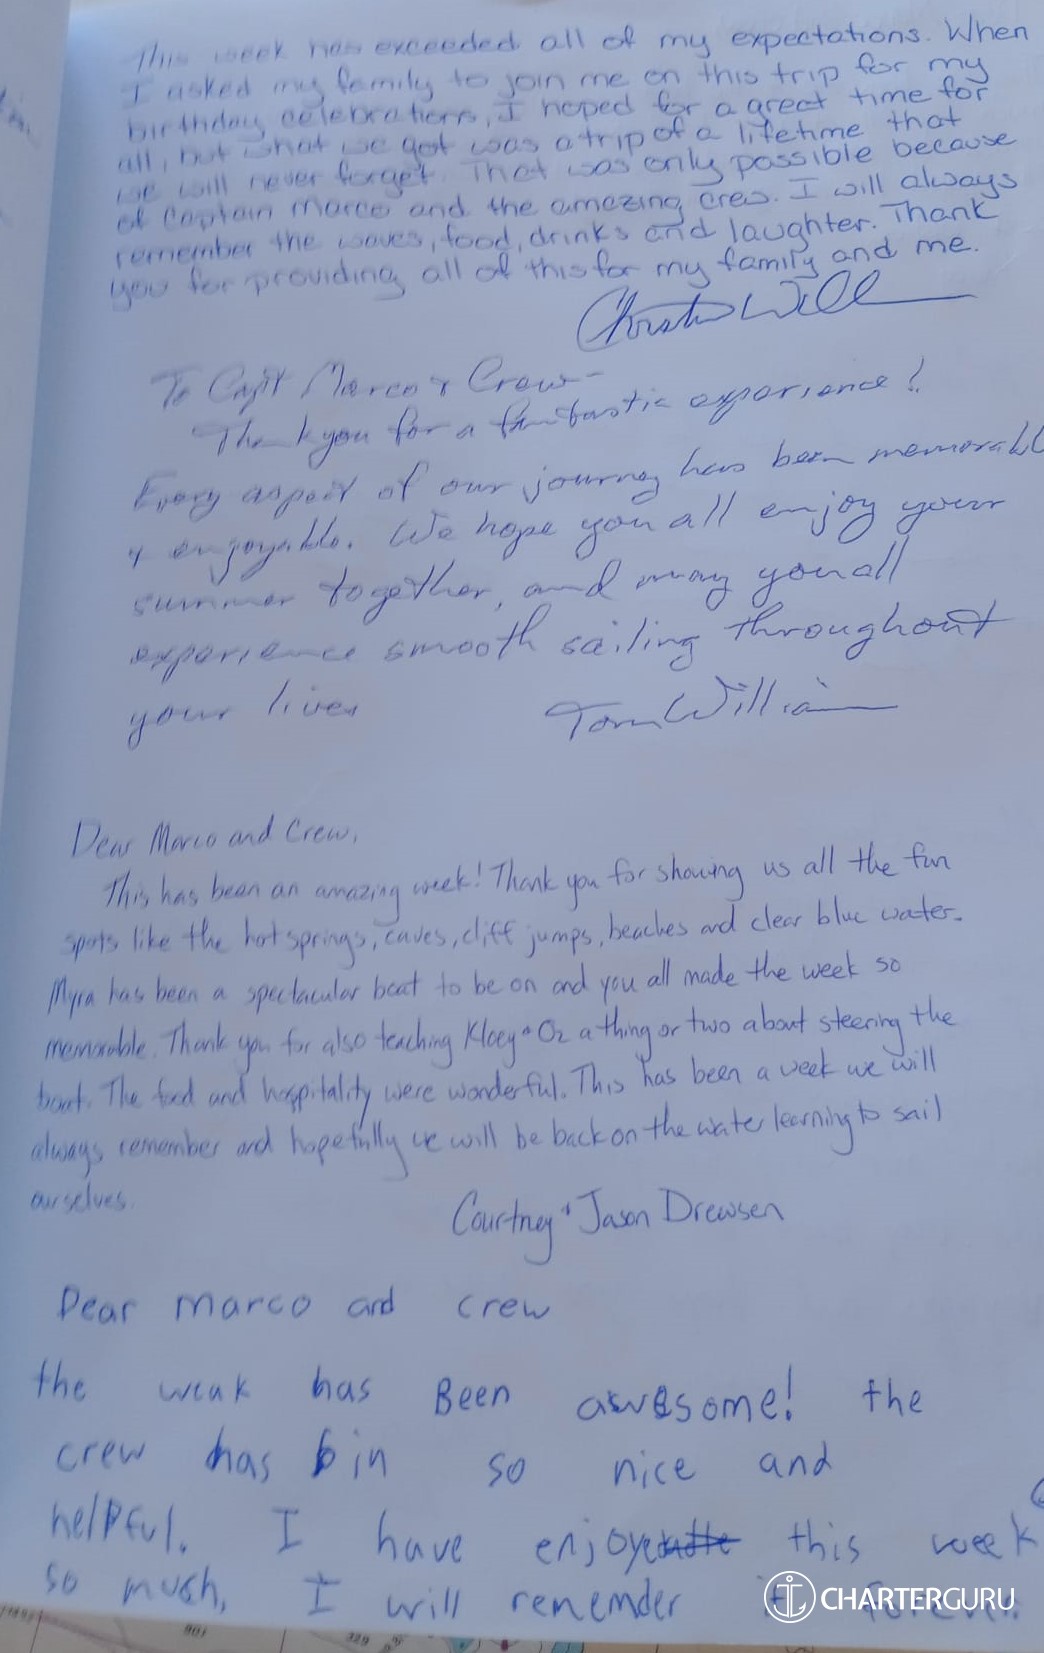 This week has exceeded all of my expectations. When
I asked my family to join me on this trip for my
birthday celebrations, I hoped for a great time for
all, but what we got was a trip of a lifetime that
we will never forget. That was only possible because
of Captain Marco and the amazing crew. I will always
remember the waves, food, drinks and laughter. Thank
you for providing all of this for my family and me.
To Capt Marco & Crew-
Thank you for a fantastic experience!
Every aspect of our journey has been memorabl
& enjoyable. We hope you all enjoy your
summer together, and may you all
experience smooth sailing throughout
your lives
Tom William
Dear Marco and Crew,
This has been an amazing week! Thank you for showing us all the fun
spots like the hot springs, caves, cliff jumps, beaches and clear blue water.
Myra has been a spectacular boat to be on and you all made the week so
memorable. Thank you for also teaching Kloey + Oz a thing or two about steering the
boat. The food and hospitality were wonderful. This has been a week we will
always remember and hopefully we will be back on the water learning to sail
ourselves.
Courtney + Jason Drewsen
Dear marco and crew
the weak has Been awesome! the
crew has bin so nice and
helpful. I have enjoye this week
so much, I will renemder it forever.
CHARTERGURU
901
329